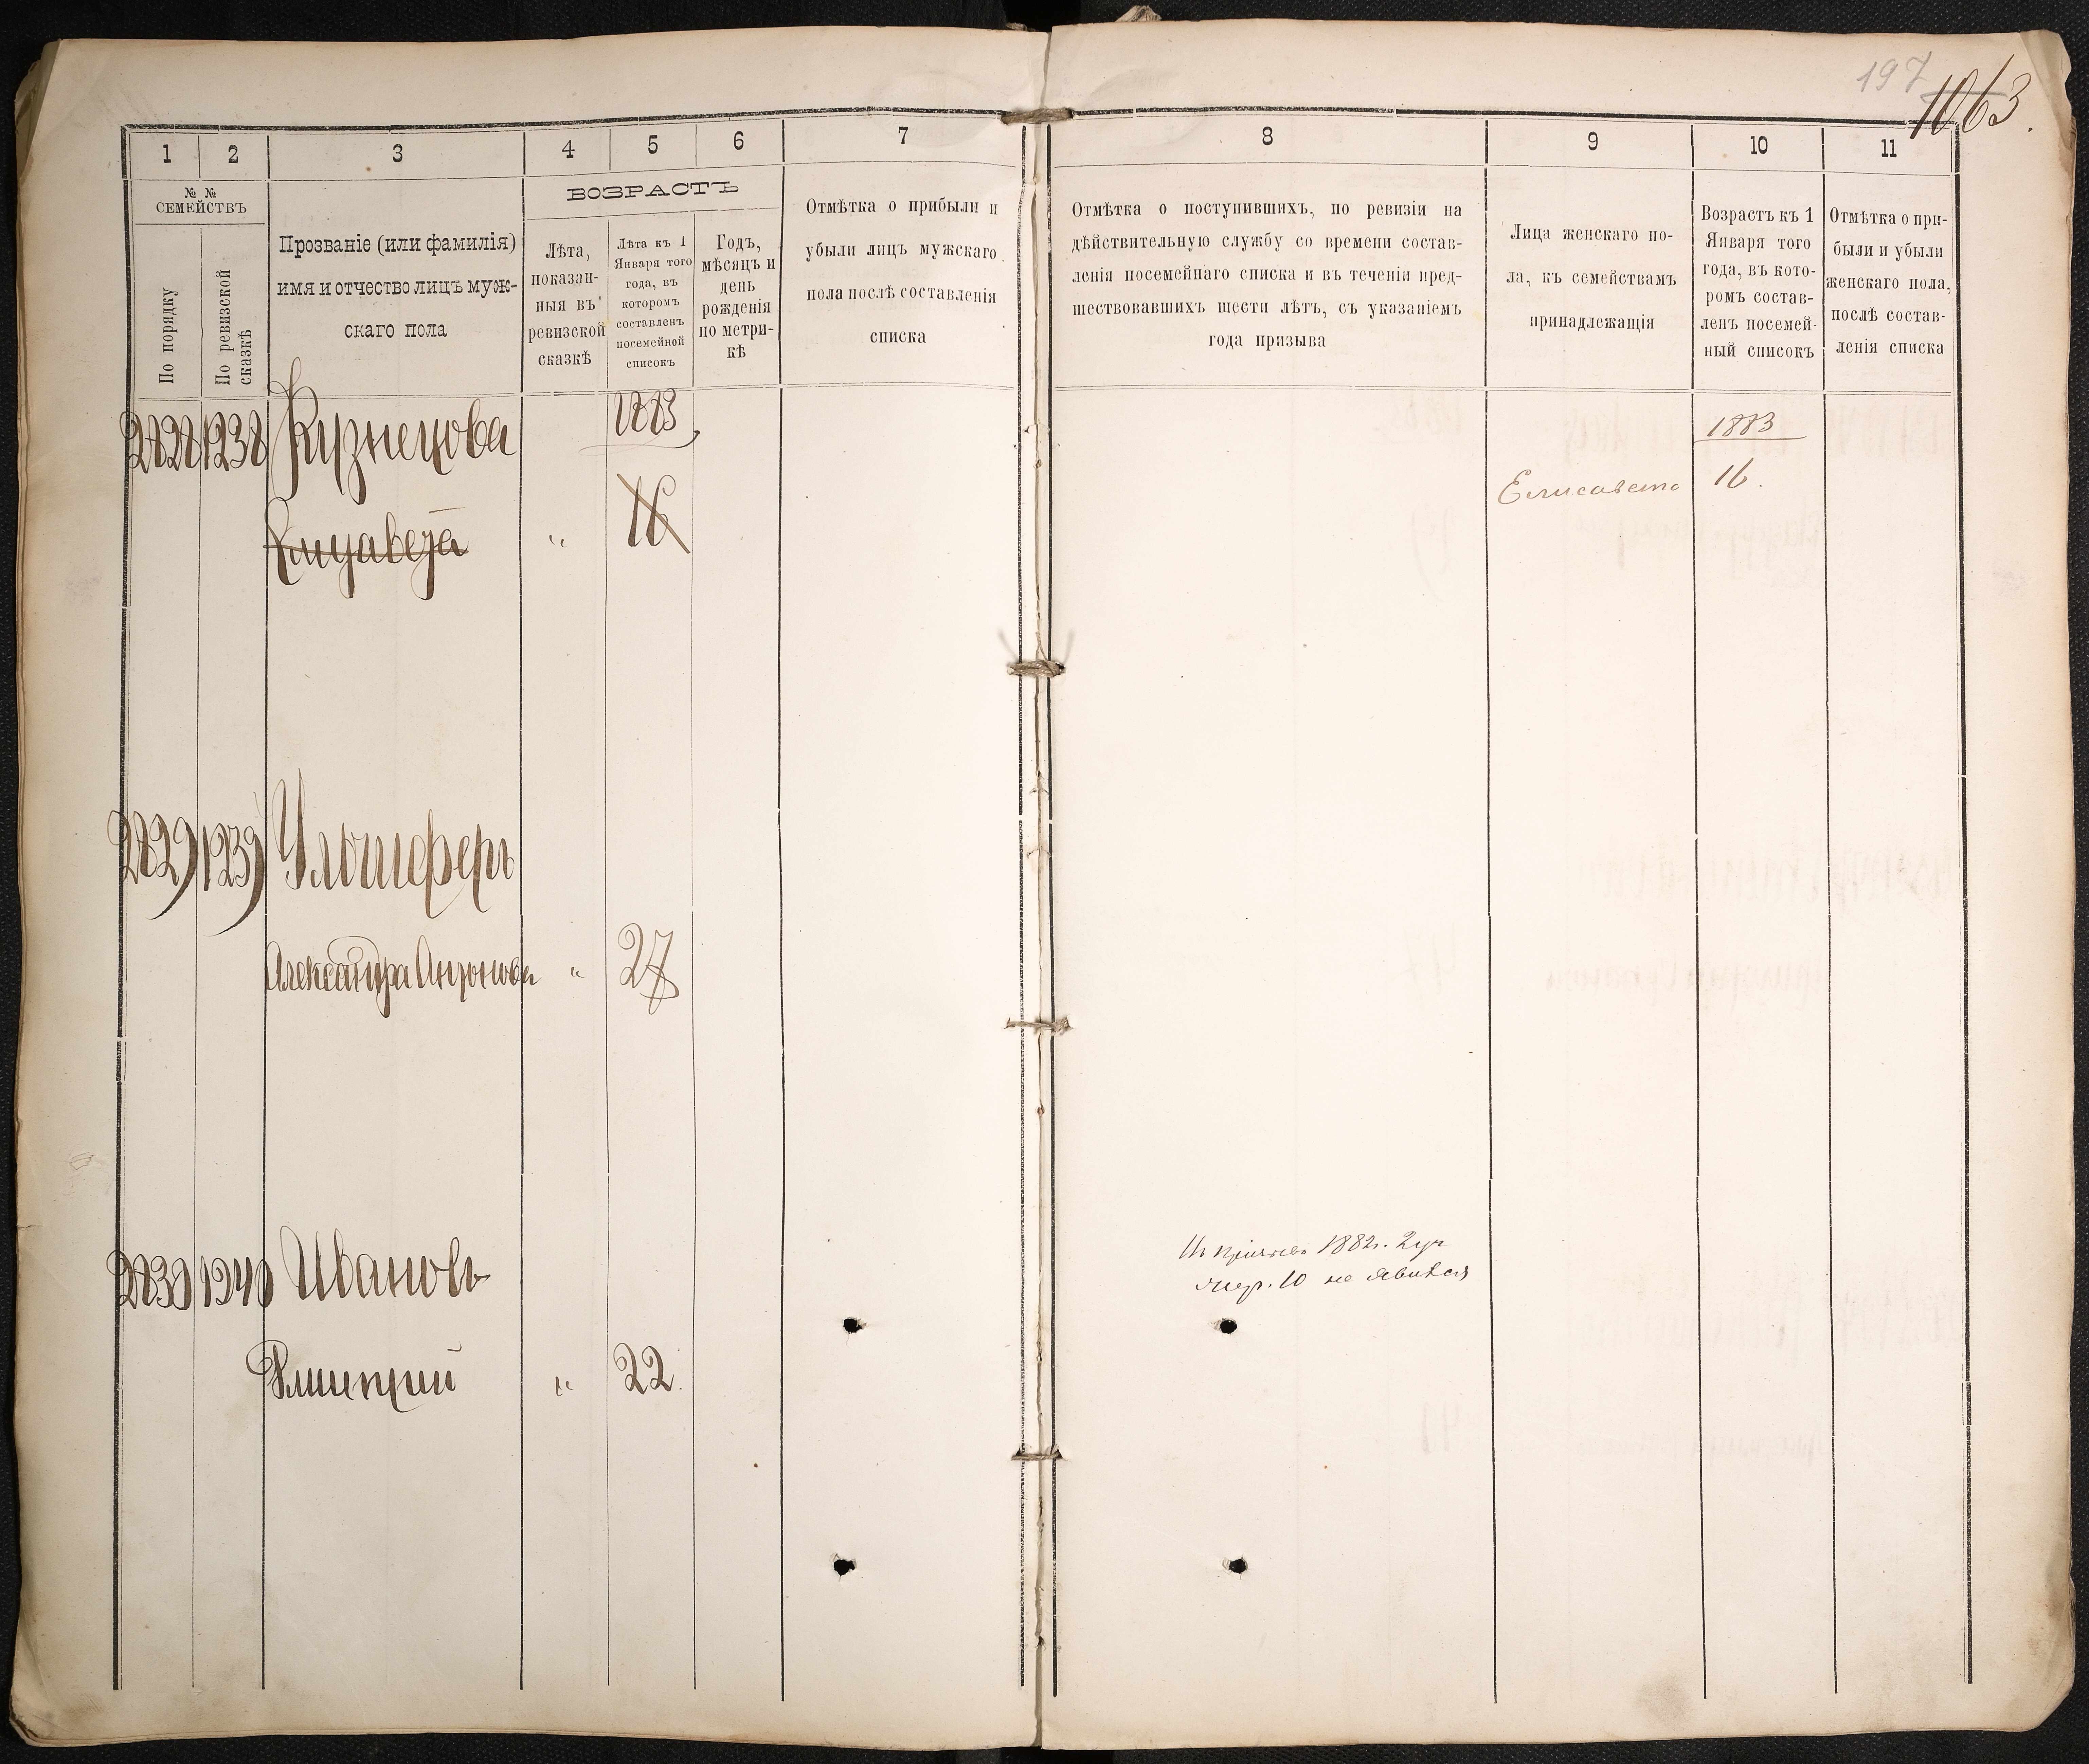 197
1063.
1 2 3 4 5 6 7 8 9 10 11
№ №
СЕМЕЙСТВЪ
По порядку
По ревизской
сказкѣ
Прозваніе (или фамилія)
имя и отчество лицъ муж-
скаго пола
ВОЗРАСТЪ
Лѣта,
показан-
ныя въ
ревизской
сказкѣ
Лѣта къ 1
Января того
года, въ
которомъ
составленъ
посемейной
списокъ
Годъ,
мѣсяцъ и
день
рожденія
по метри-
кѣ
Отмѣтка о прибыли и
убыли лицъ мужскаго
пола послѣ составленія
списка
Отмѣтка о поступившихъ, по ревизіи на
дѣйствительную службу со времени состав-
ленія посемейнаго списка и въ теченіи пред-
шествовавшихъ шести лѣтъ, съ указаніемъ
года призыва
Лица женскаго по-
ла, къ семействамъ
принадлежащія
Возрастъ къ 1
Января того
года, въ кото-
ромъ состав-
ленъ посемей-
ный списокъ
Отмѣтка о при-
были и убыли
женскаго пола,
послѣ состав-
ленія списка
1883 1883
2828 1238 Кузнецова
Елисавета 16.
Елизавета " 16
2829 1239
Александра Антонова " 27
2830 1240 Ивановъ
1882г. 2 уч
жер. 10 не явился
Дмитрій " 22.